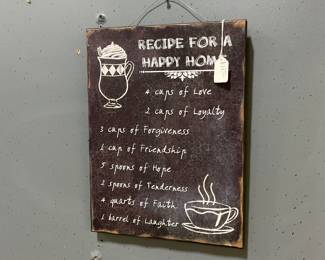 RECIPE FOR A
HAPPY HOME
4 cups of Love
2 cups of Loyalty
3 cups of Forgiveness
1 cup of Friendship
5 spoons of Hope
2 spoons of Tenderness
4 quarts of Faith
1 barrel of Laughter